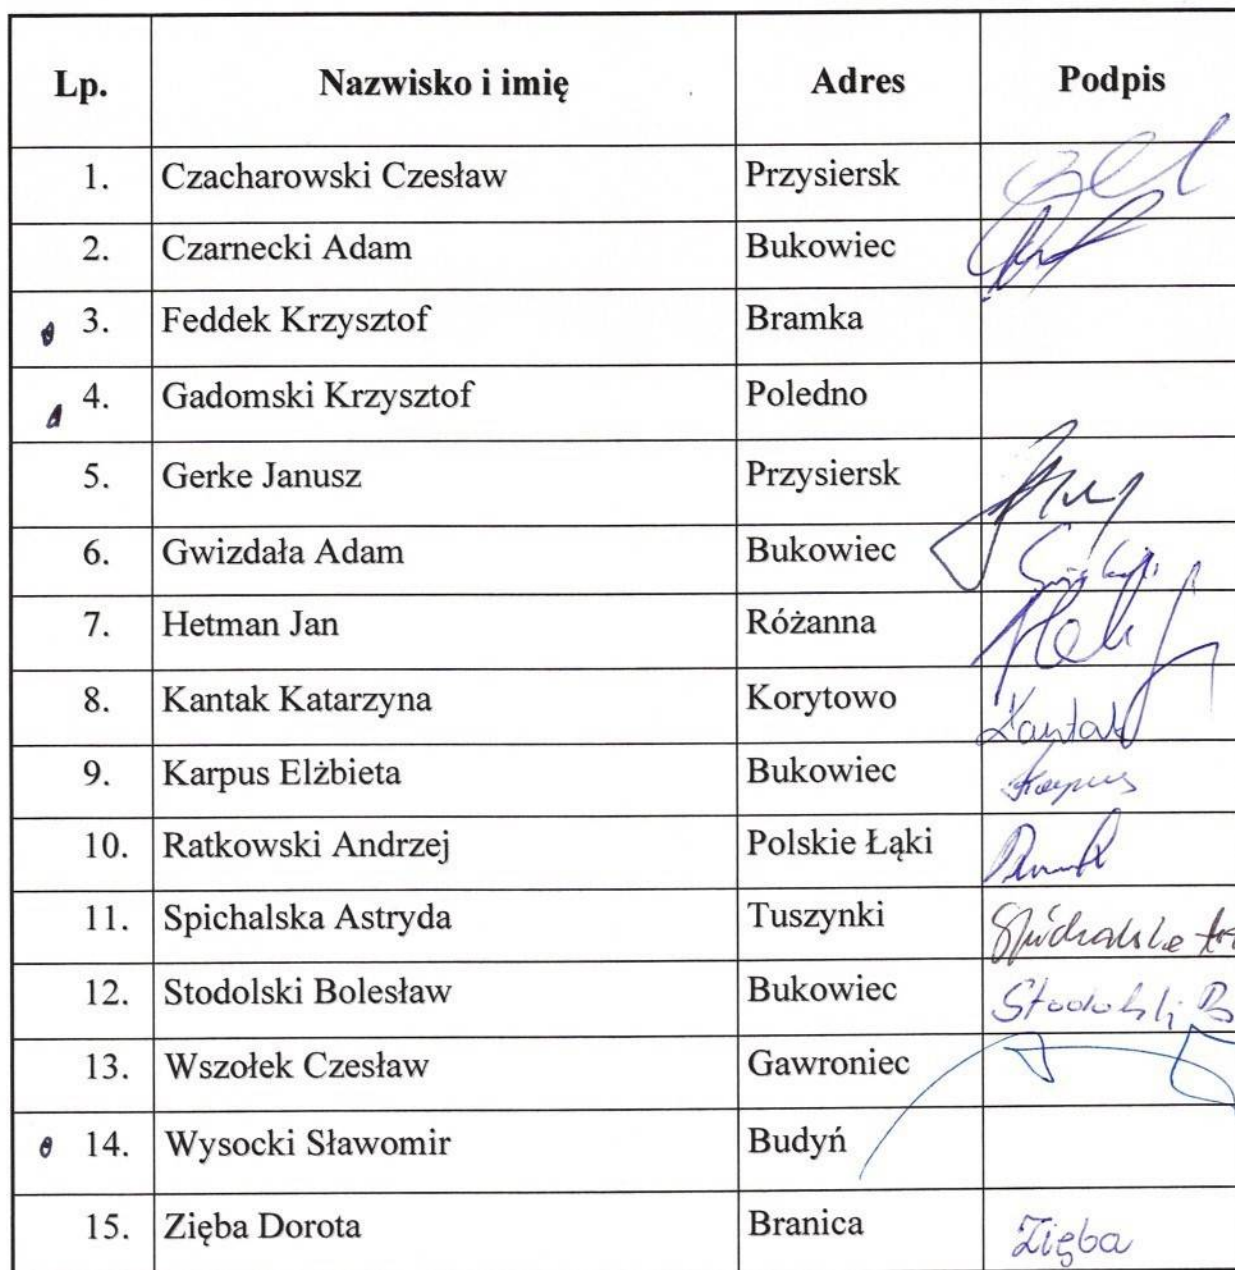 Lp. Nazwisko i imię Adres Podpis
1. Czacharowski Czesław Przysiersk
2. Czarnecki Adam Bukowiec
3. Feddek Krzysztof Bramka
4. Gadomski Krzysztof Poledno
5. Gerke Janusz Przysiersk
6. Gwizdała Adam Bukowiec
7. Hetman Jan Różanna
8. Kantak Katarzyna Korytowo Kantak
9. Karpus Elżbieta Bukowiec Karpus
10. Ratkowski Andrzej Polskie Łąki
11. Spichalska Astryda Tuszynki
12. Stodolski Bolesław Bukowiec Stodolski B
13. Wszołek Czesław Gawroniec
14. Wysocki Sławomir Budyń
15. Zięba Dorota Branica Zięba